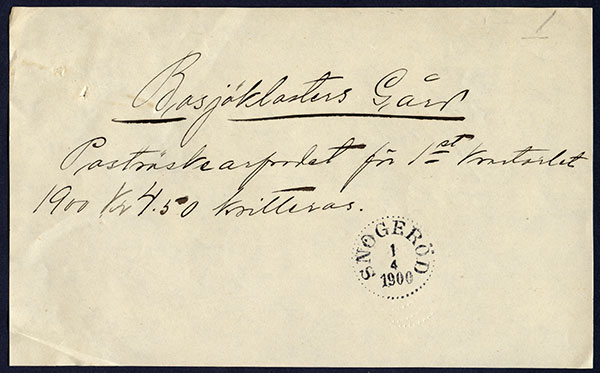 1
Bosjöklosters Gård
Postväskearfvodet för 1st kvartalet
1900 Kr 4.50 kvitteras.
SNOGERÖD
1
4
1900